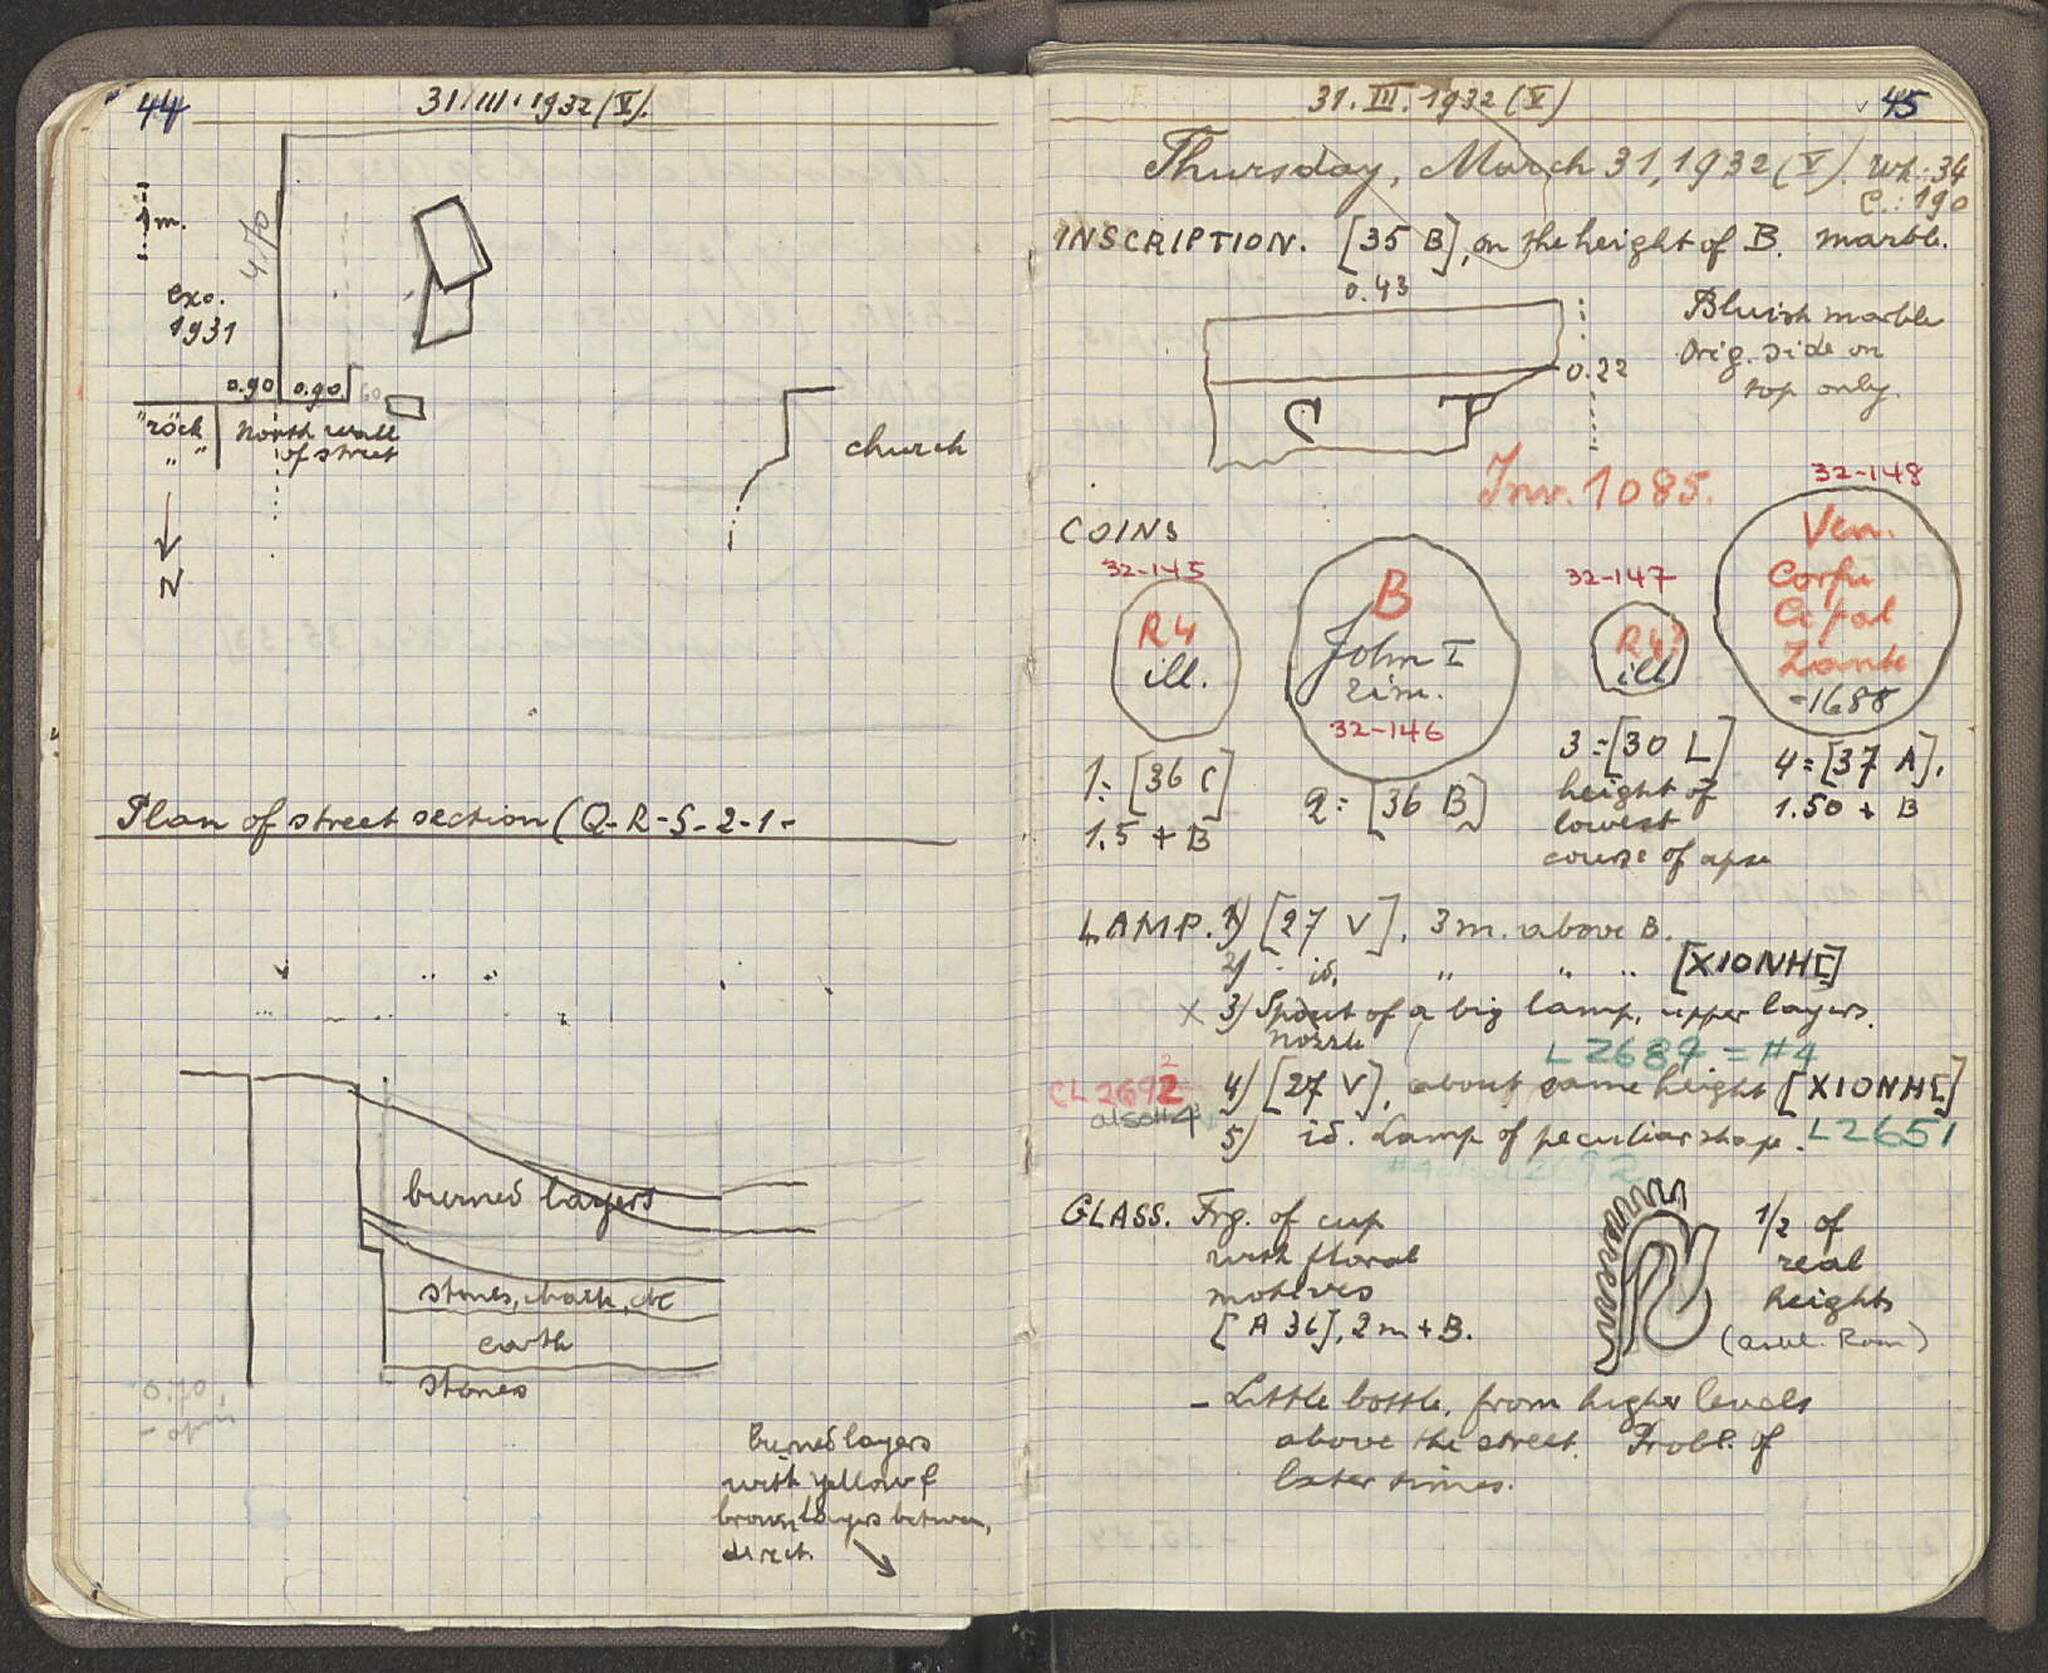 44
31.III.1932 (V).
1 m.
4.70
exc.
1931
0.90 0.90
"rock"
North wall
of street
church
N
Plan of street section (Q-R-S-2-1-
burned layers
stones, chalk, etc
earth
stones
0.70,
burned layers
with yellow &
brown layers between,
direct.
31. III. 1932 (V)
45
Thursday, March 31, 1932 (V). Wk.: 34
C.: 190
INSCRIPTION. [35 B], on the height of B. marble.
0.43
0.22
Bluish marble
Orig. side on
top only.
C T
Inv. 1085.
COINS
32-145
R4
ill.
B
John I
Zim.
32-146
32-147
R4?
ill
32-148
Ven.
Corfu
Cefal
Zante
-1688
1: [36 C]
1.5 + B
2: [36 B]
3 = [30 L]
height of
lowest
course of apse
4 = [37 A],
1.50 + B
LAMP. 1) [27 V], 3 m. above B.
2) id. " " " [ΧΙΟΝΗC]
X 3) Spout of a big lamp, upper layers.
nozzle
L 2687 = #4
CL 2692
also #4
4) [27 V], about same height [ΧΙΟΝΗC]
5) id. Lamp of peculiar shape. L 2651
GLASS. Frg. of cup
with floral
motives
[A 36], 2 m + B.
1/2 of
real
heights
- Little bottle, from higher levels
above the street. Probl. of
later times.